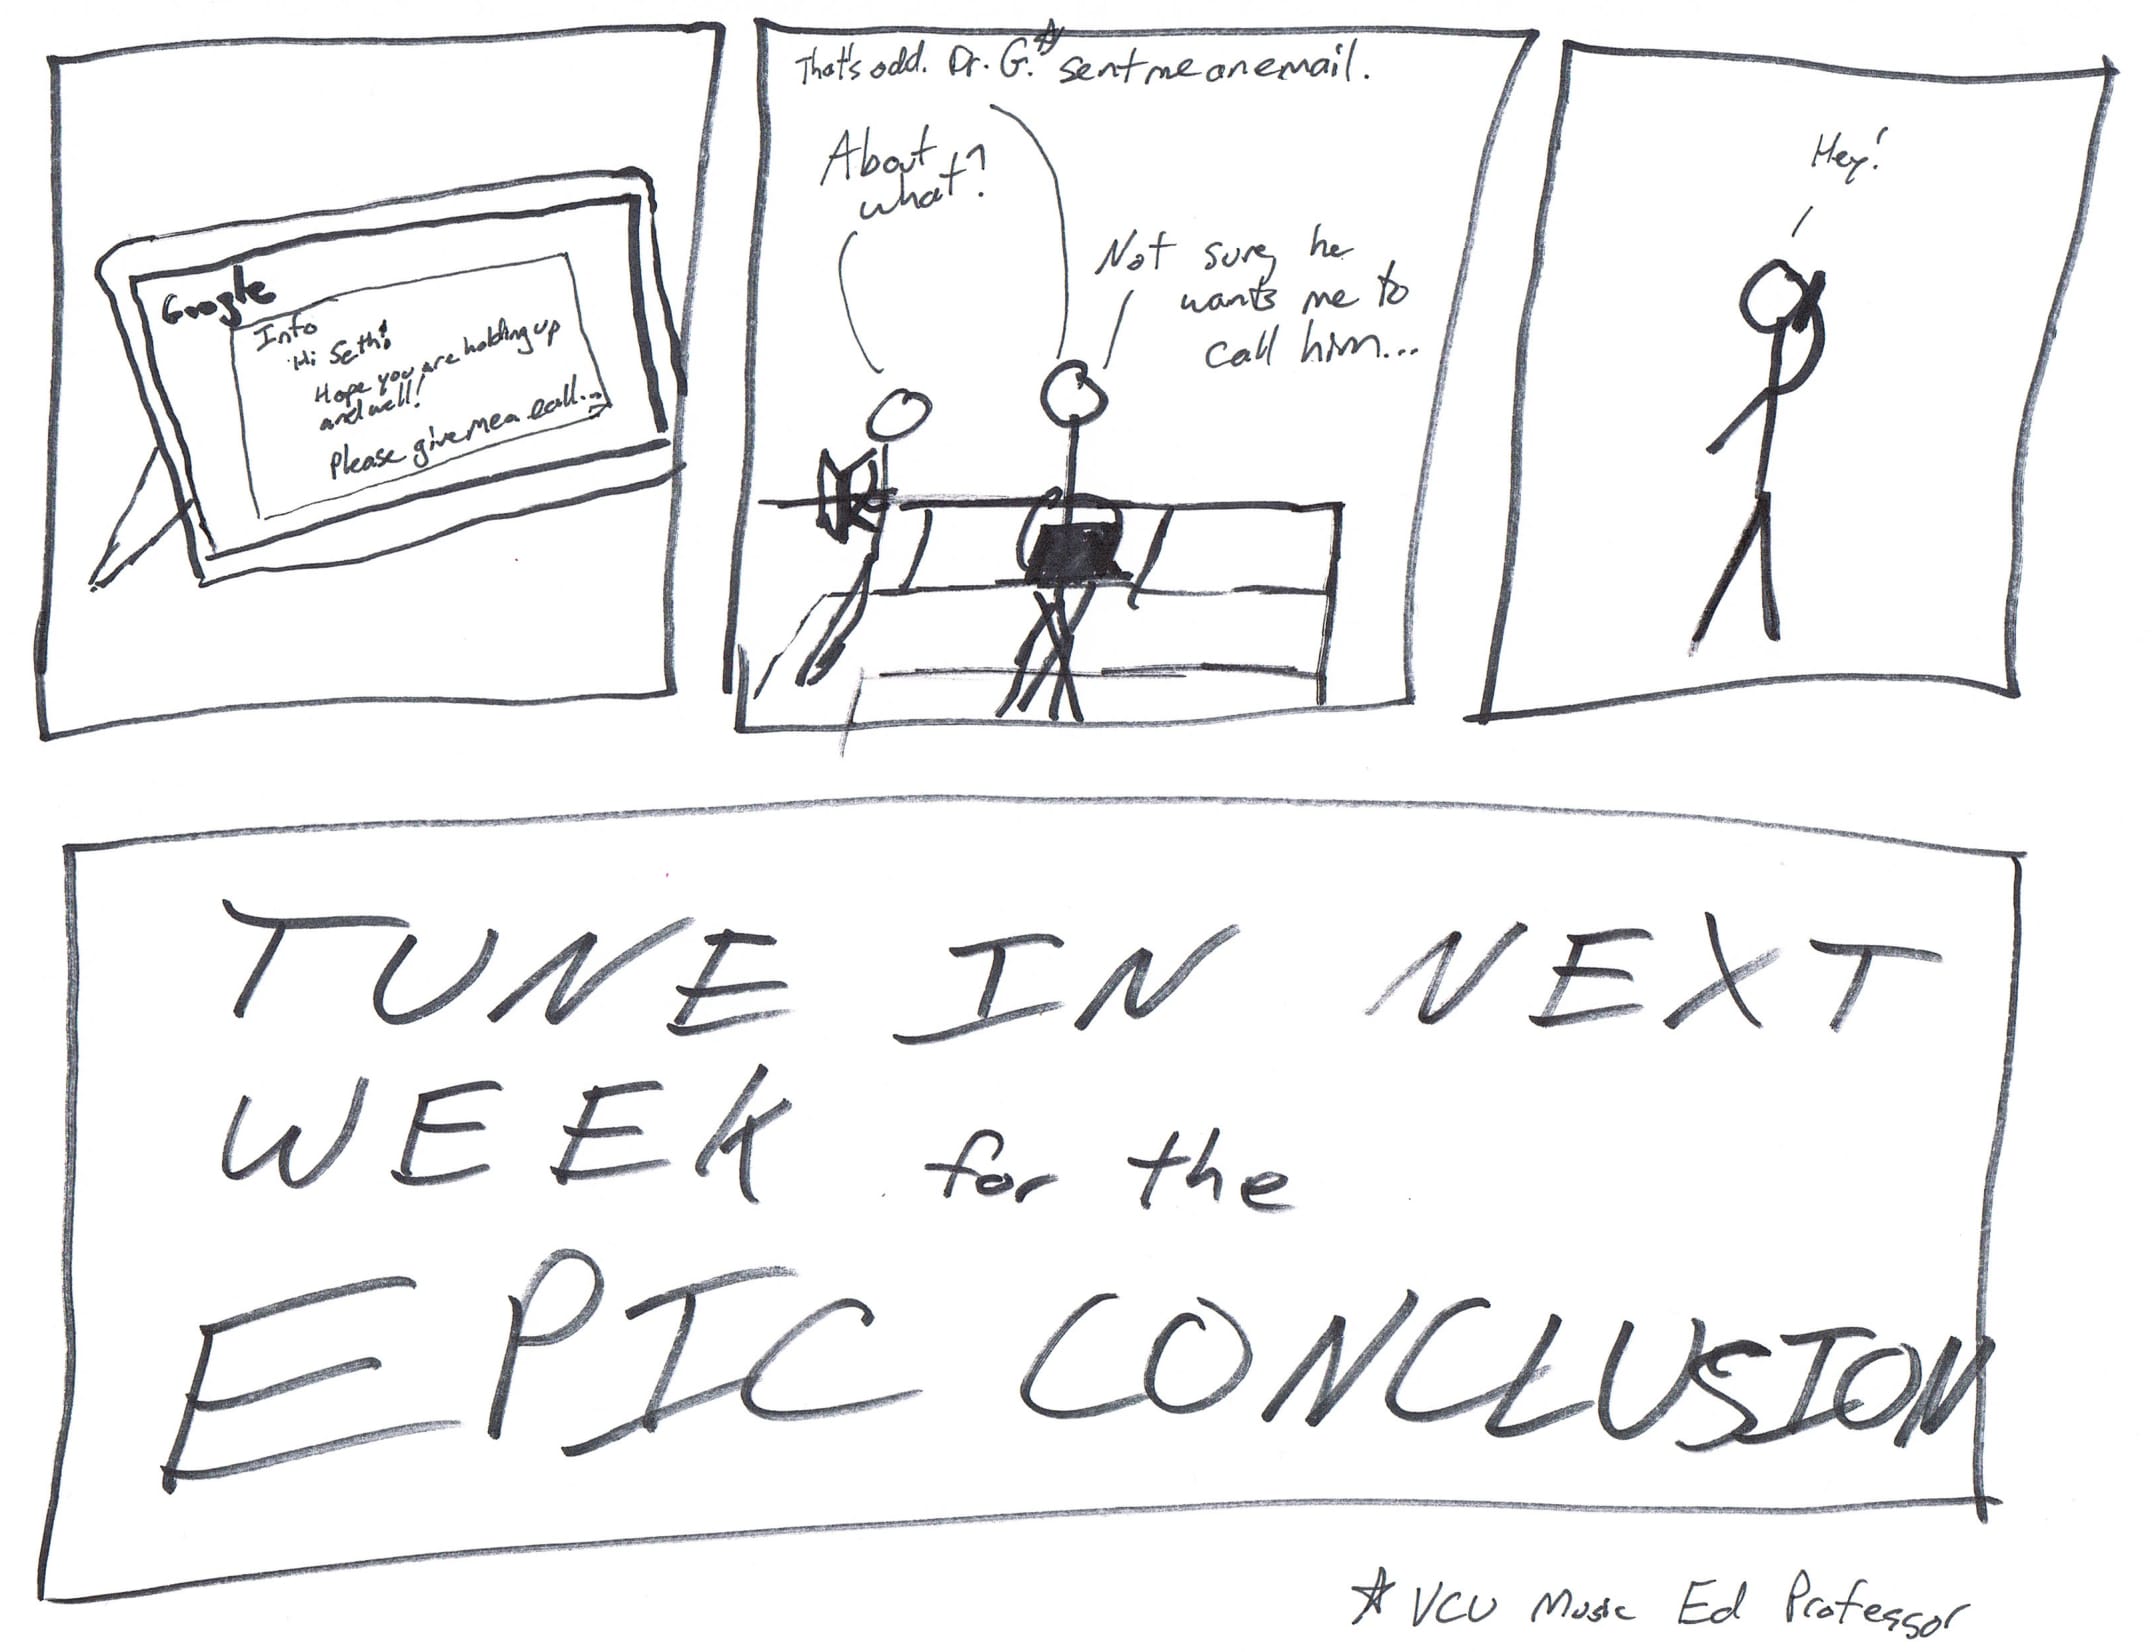 Google
Info
Hi Seth!
Hope you are holding up
and well!
Please give me a call...
That's odd. Dr. G.☆ sent me an email.
About
what?
Not sure, he
wants me to
call him...
Hey!
TUNE IN NEXT
WEEK for the
EPIC CONCLUSION
☆ VCU Music Ed Professor